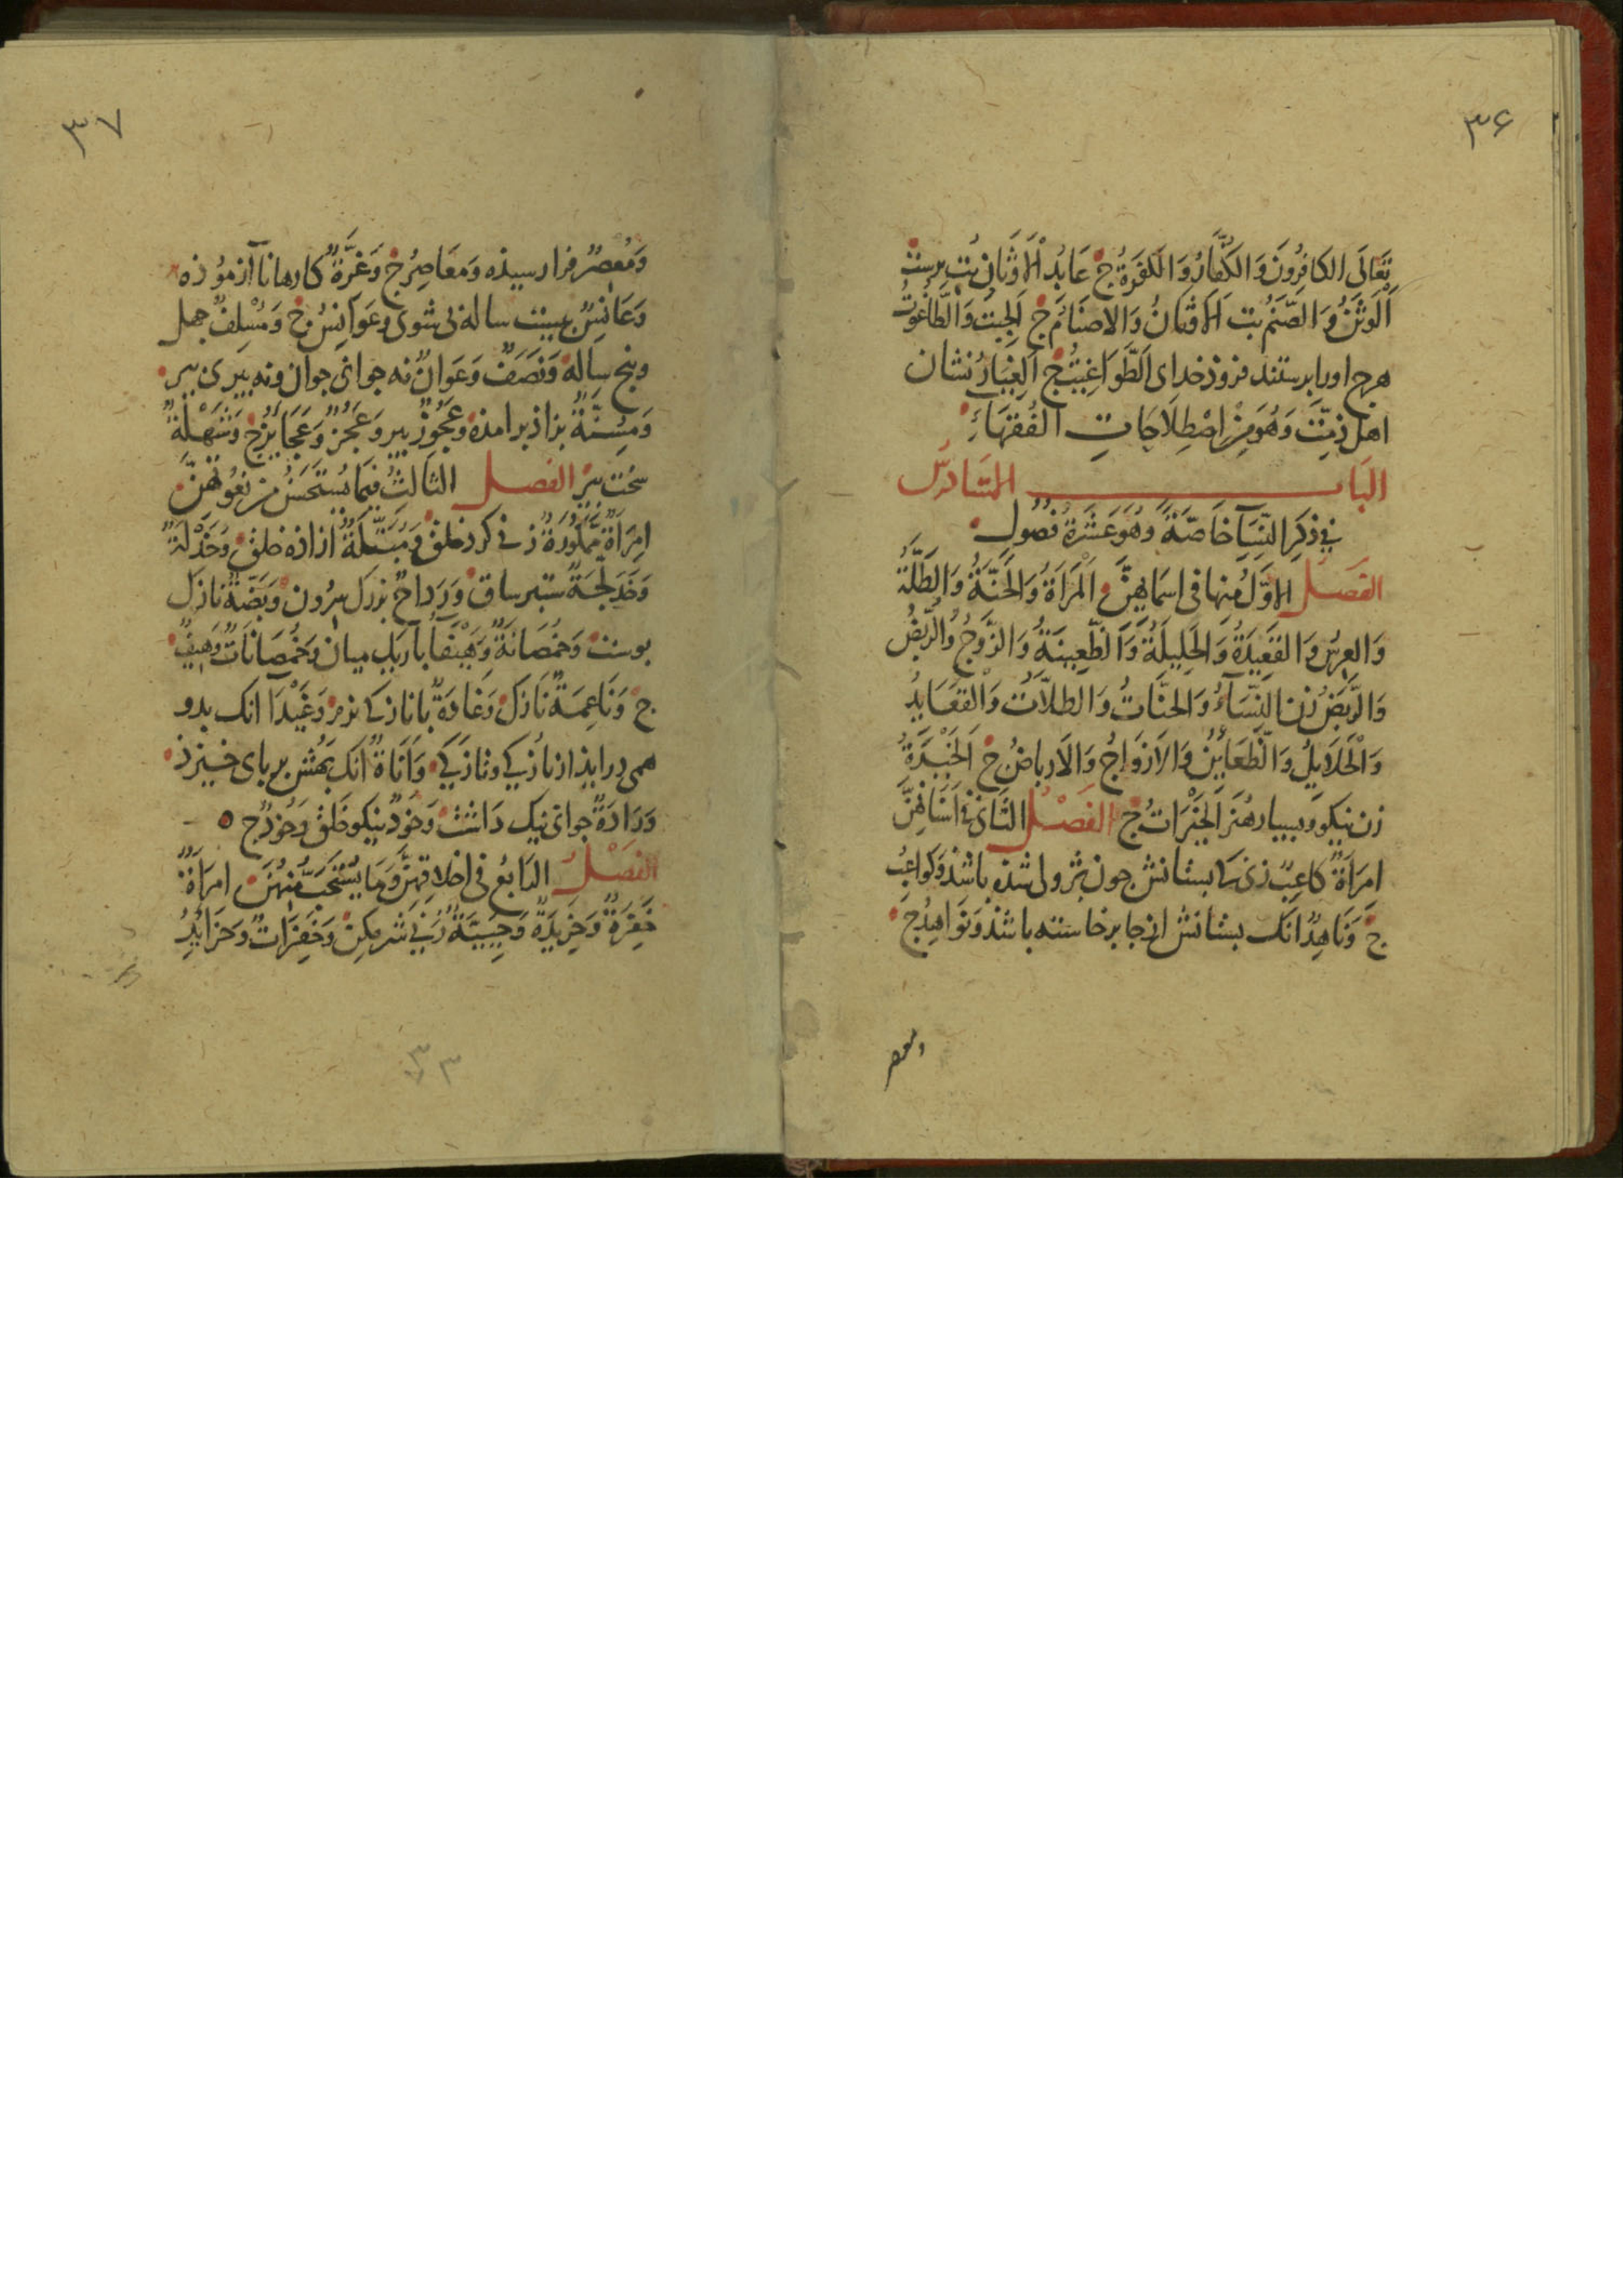 ۳۶
تَعَالَى الكَافِرُونَ وَالكُفَّارُ وَالكَفَرَةُ ج عَابِدُ الْاَوْثَانِ بُت پرست
اَلْوَثَنُ وَالصَّنَمُ بت اَلْاَوْثَانُ وَالاَصْنَامُ ج اَلجِبْتُ وَالطَّاغُوتُ
هرج اورا برستند فروذ خداى اَلطَّوَاغِيتُ ج اَلغِيَارُ نشان
اهل ذمّت وَهُوَ مِنْ اِصْطِلَاحَاتِ الفُقَهَاءِ
البَابُ السَّادِسُ
فِي ذِكْرِ النِّسَآءِ خَاصَّةً وَهُوَ عَشَرَةُ فُصُولٍ
الفَصْلُ الاَوَّلُ مِنهَا فى اَسمَايهِنَّ اَلْمَرْاَةُ وَالحَنَّةُ وَالطَّلَّةُ
وَالعِرْسُ وَالقَعِيدَةُ وَالحَلِيلَةُ وَالظَّعِينَةُ وَالزَّوْجُ وَالرُّبْضُ
وَالرَّبَضُ زن النِّسَآءُ وَالحَنَّاتُ وَالطلَّاتُ وَالْقَعَايِدُ
وَالْحَلَايِلُ وَالظَّعَايِنُ وَالاَزْوَاجُ وَالاَرباضُ ج اَلخَيْرَةُ
زن نيكو وبسيار هُنَر الخَيْرَاتُ ج الفَصْلُ الثَّانِى فى اَسْنَانِهِنَّ
اِمرَاَةٌ كَاعِبٌ زنى كه بستانش جون نرولى شذه باشذ وَكَوَاعِبُ
ج وَنَاهِدٌ انك بستانش از جا برخاسته باشذ وَنَوَاهِدُ ج
ومعصر
۳۷
وَمُعصِرٌ فرا رسيذه وَمَعَاصِرُ ج وَغِرَّةٌ كارها نا آزموُذه
وَعَانِسٌ بيست ساله بى شوى وعَوَانِسُ ج وَمُسْلِفٌ جهل
وبنج ساله وَنَصَفٌ وَعَوَانٌ نه جوانى جوان ونه بيرى بير
وَمُسِنَّةٌ بزاذ برامذه وعَجُوزٌ بير وَعُجُزٌ وَعَجَايزُ ج وَشَهْلَةٌ
سخت بير الفصل الثالثُ فِيمَا يُستَحسَنُ مِن نُعُوتِهِنَّ
اِمرَاَةٌ مَمْكُورَةٌ زنى كرد خلق وَمُبَتَّلَةٌ ازاذه خلق وَخَدْلَةٌ
وَخَدَلَّجَةٌ ستبر ساق وَرَدَاحٌ بزرك سرُون وَبَضَّةٌ نازك
بوست وَخُمصَانَةٌ وَهَيْفَآءُ باريك ميان وَخُمصَانَاتٌ وَهِيفٌ
ج وَنَاعِمَةٌ نَازك وَغَادَةٌ با نازكى نرم وَغَيْدَا انك بدو
همى درايذ از نازكى ونازكى وَاَنَاةٌ انك بهُش بر باى خيزذ
وَرَادَةٌ جوانى نيك دَاشت وَخَوْدٌ نيكو خلق وَخُودٌ ج
الفَصْلُ الرَابعُ فى اخلاقِهِنَّ وَمَا يُسْتَحَبُّ مِنهُنَّ اِمرَاَةٌ
خَفِرَةٌ وَخَرِيدَةٌ وَحَيِيَّةٌ زنى شرمكين وَخَفِرَاتٌ وَخَرَايِدُ
۳۳